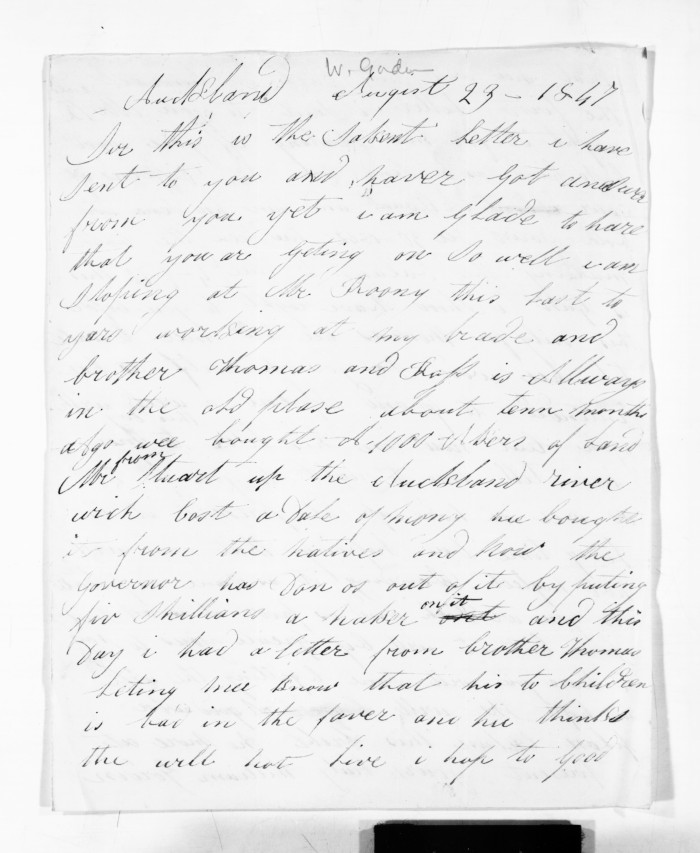 W. Gorden
Auckland August 23 - 1847
Sir this is the Sakent Letter i have
Sent to you and haver Got
from you yet i am Glade to hare
that you ar Geting on So well i am
Stoping at Mr this Last to
yars working at my trade and
brother Thomas and is Allways
in the old plase about tenn months
Ago wee bought A 1000 Akers of Land
from
Mr Stuart up the Auckland river
wich Cost a Dale of mony hee bought
it from the natives and Now the
Governor has Don os out of it by puting
fiv Shillians a haker on it and this
Day i had a letter from brother Thomas
Leting mee know that his to Children
is bad in the faver and hee thinks
the will not Live i hop to good